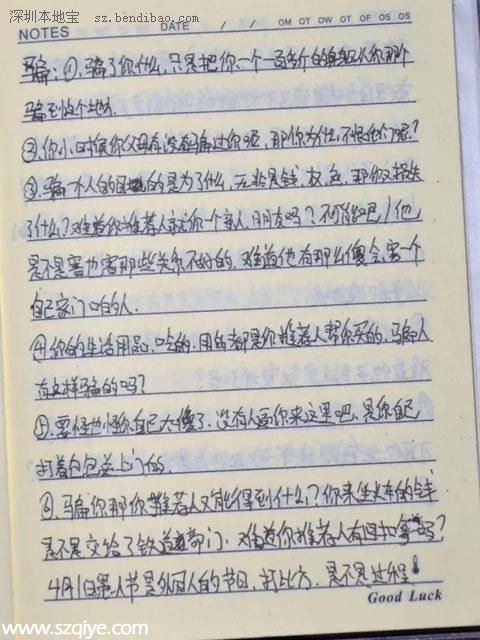 深圳本地宝 sz.bendibao.com
NOTES DATE / / OM OT OW OT OF OS OS
骗：①、骗了你什么，只是把你一个一百多斤的身躯从你那个
骗到这个地方
②你小时候你父母有没有骗过你呢，那你为什么不恨他们呢？
③、骗一个人的目的是为了什么，无非是钱、权、色，那你又损失
了什么？难道你推荐人就你一个亲人、朋友吗？不可能吧！他
是不是害也害那些关系不好的，难道他有那么傻会害一个
自己家门口的人.
④你的生活用品、吃的、用的都是你推荐人帮你买的，骗人
有这样骗的吗？
⑤、要怪也怪你自己太傻了，没有人要你来这里吧，是你自己
打着包包送上门的.
⑥、骗你那你推荐人又能得到什么？你来坐火车的钱
是不是交给了铁道部门，难道你推荐人有回扣拿吗？
4月1日愚人节是外国人的节日，打比方，是不是过程！
Good Luck
www.szqiye.com